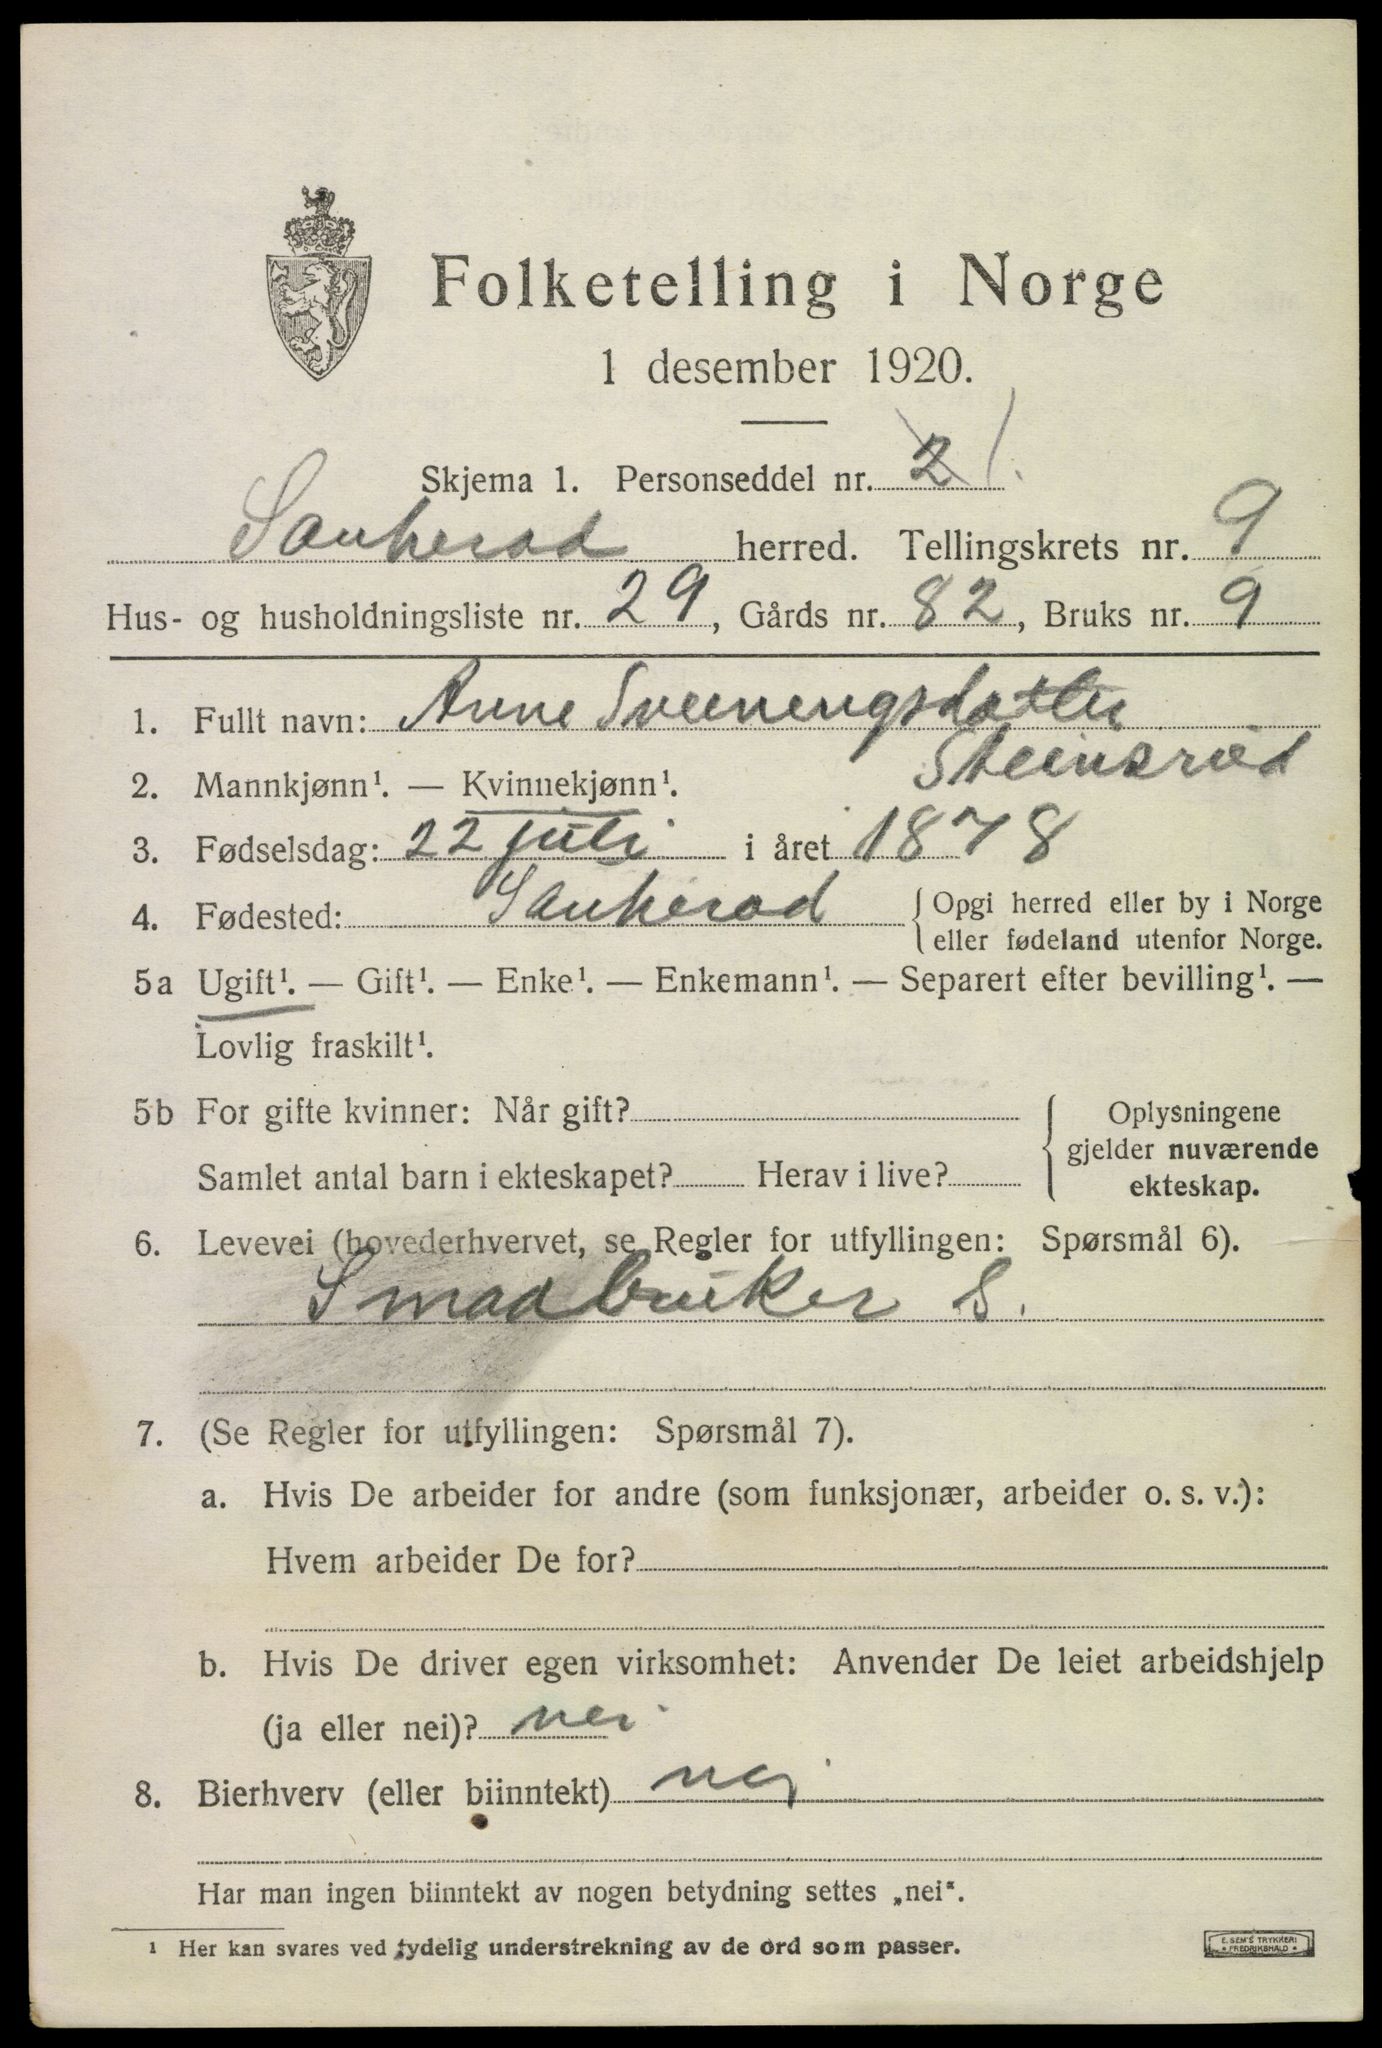 Folketelling i Norge
1 desember 1920.
Skjema 1. Personseddel nr. 2 1.
Sauherad herred. Tellingskrets nr. 9
Hus- og husholdningsliste nr. 29, Gårds nr. 82, Bruks nr. 9
1. Fullt navn: Anne Sveinungsdatter
Steinsrud
2. Mannkjønn¹. — Kvinnekjønn¹.
3. Fødselsdag: 22 juli i året 1878
4. Fødested: Sauherad { Opgi herred eller by i Norge
eller fødeland utenfor Norge.
5a Ugift¹. — Gift¹. — Enke¹. — Enkemann¹. — Separert efter bevilling¹. —
Lovlig fraskilt¹.
5b For gifte kvinner: Når gift?
Samlet antal barn i ekteskapet? Herav i live?
Oplysningene
gjelder nuværende
ekteskap.
6. Levevei (hovederhvervet, se Regler for utfyllingen: Spørsmål 6).
Smaabruker S.
7. (Se Regler for utfyllingen: Spørsmål 7).
a. Hvis De arbeider for andre (som funksjonær, arbeider o. s. v.):
Hvem arbeider De for?
b. Hvis De driver egen virksomhet: Anvender De leiet arbeidshjelp
(ja eller nei)? nei
8. Bierhverv (eller biinntekt) nei
Har man ingen biinntekt av nogen betydning settes „nei".
¹ Her kan svares ved tydelig understrekning av de ord som passer.
E. SEM'S TRYKKERI
FREDRIKSHALD